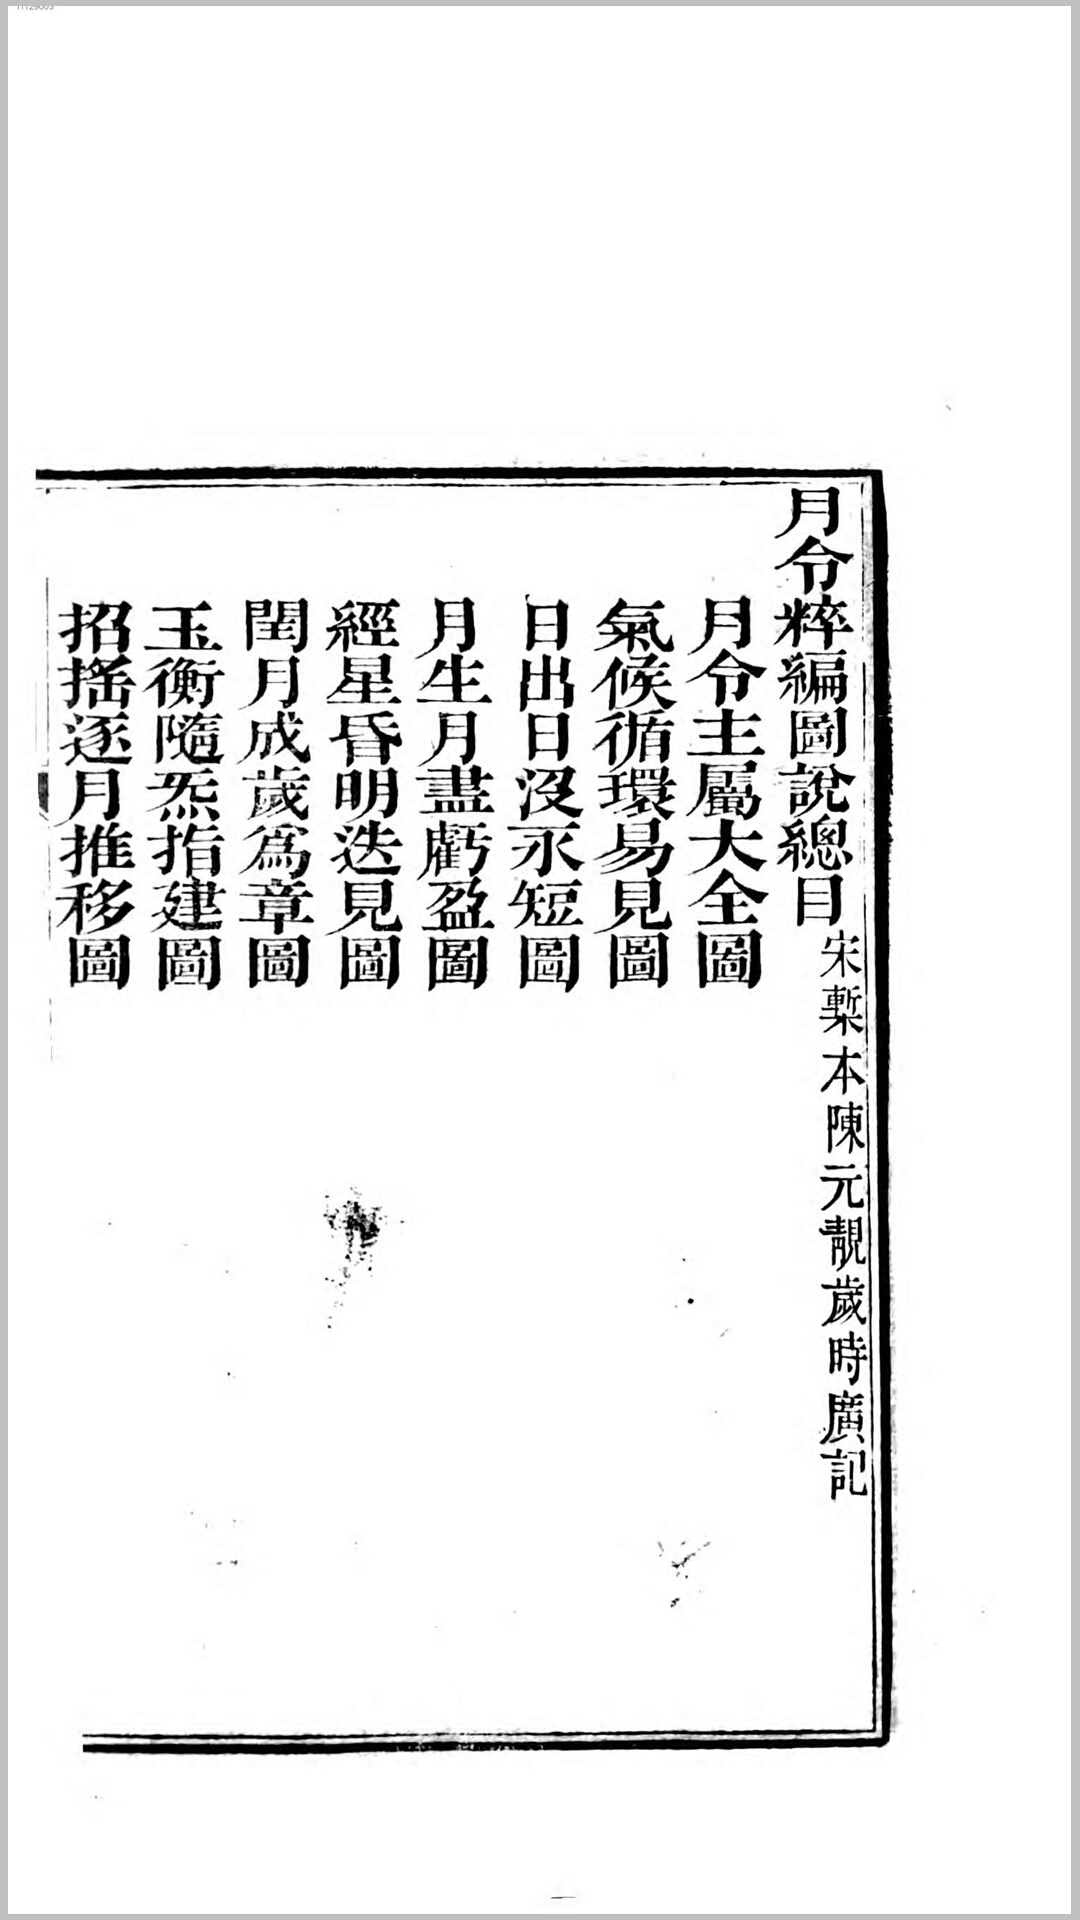 月令粹編圖說總目宋槧本陳元靚歲時廣記
月令主屬大全圖
氣候循環易見圖
日出日沒永短圖
月生月盡虧盈圖
經星昏明迭見圖
閏月成歲爲章圖
玉衡隨炁指建圖
招搖逐月推移圖
一